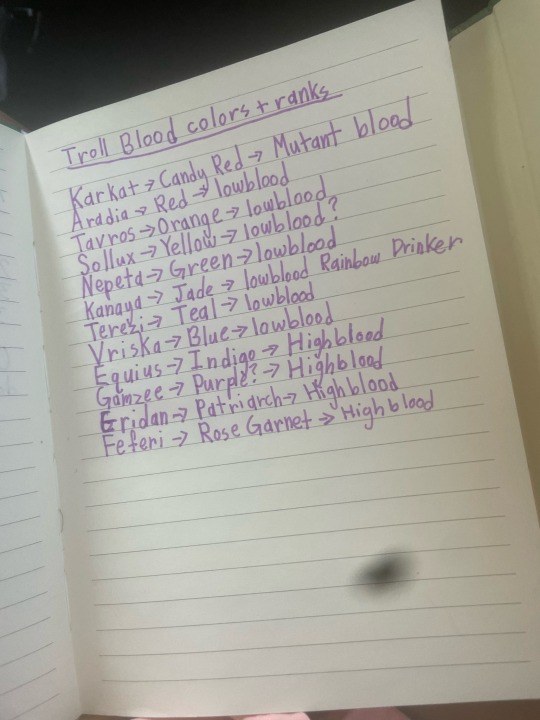 Troll Blood colors + ranks
Karkat → Candy Red → Mutant blood
Aradia → Red → lowblood
Tavros → Orange → lowblood
Sollux → Yellow → lowblood?
Nepeta → Green → lowblood
Kanaya → Jade → lowblood Rainbow Drinker
Terezi → Teal → lowblood
Vriska → Blue → lowblood
Equius → Indigo → Highblood
Gamzee → Purple? → Highblood
Eridan → Patriarch → Highblood
Feferi → Rose Garnet → Highblood